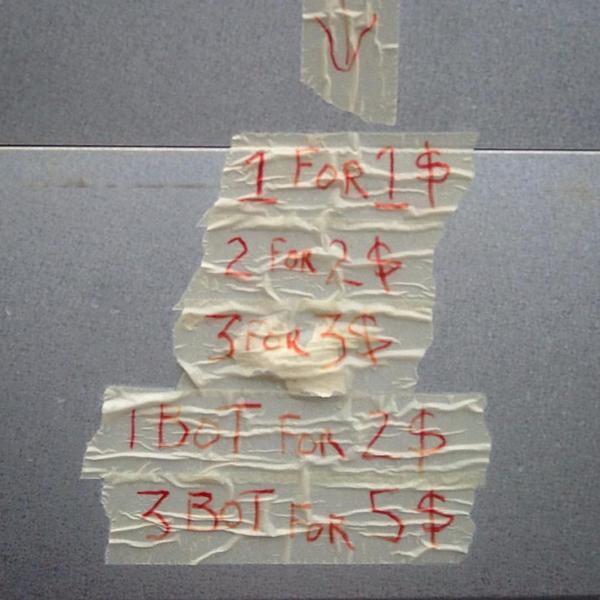 1 FOR 1 $
2 FOR 2 $
3 FOR 3 $
1 BOT FOR 2 $
3 BOT FOR 5 $